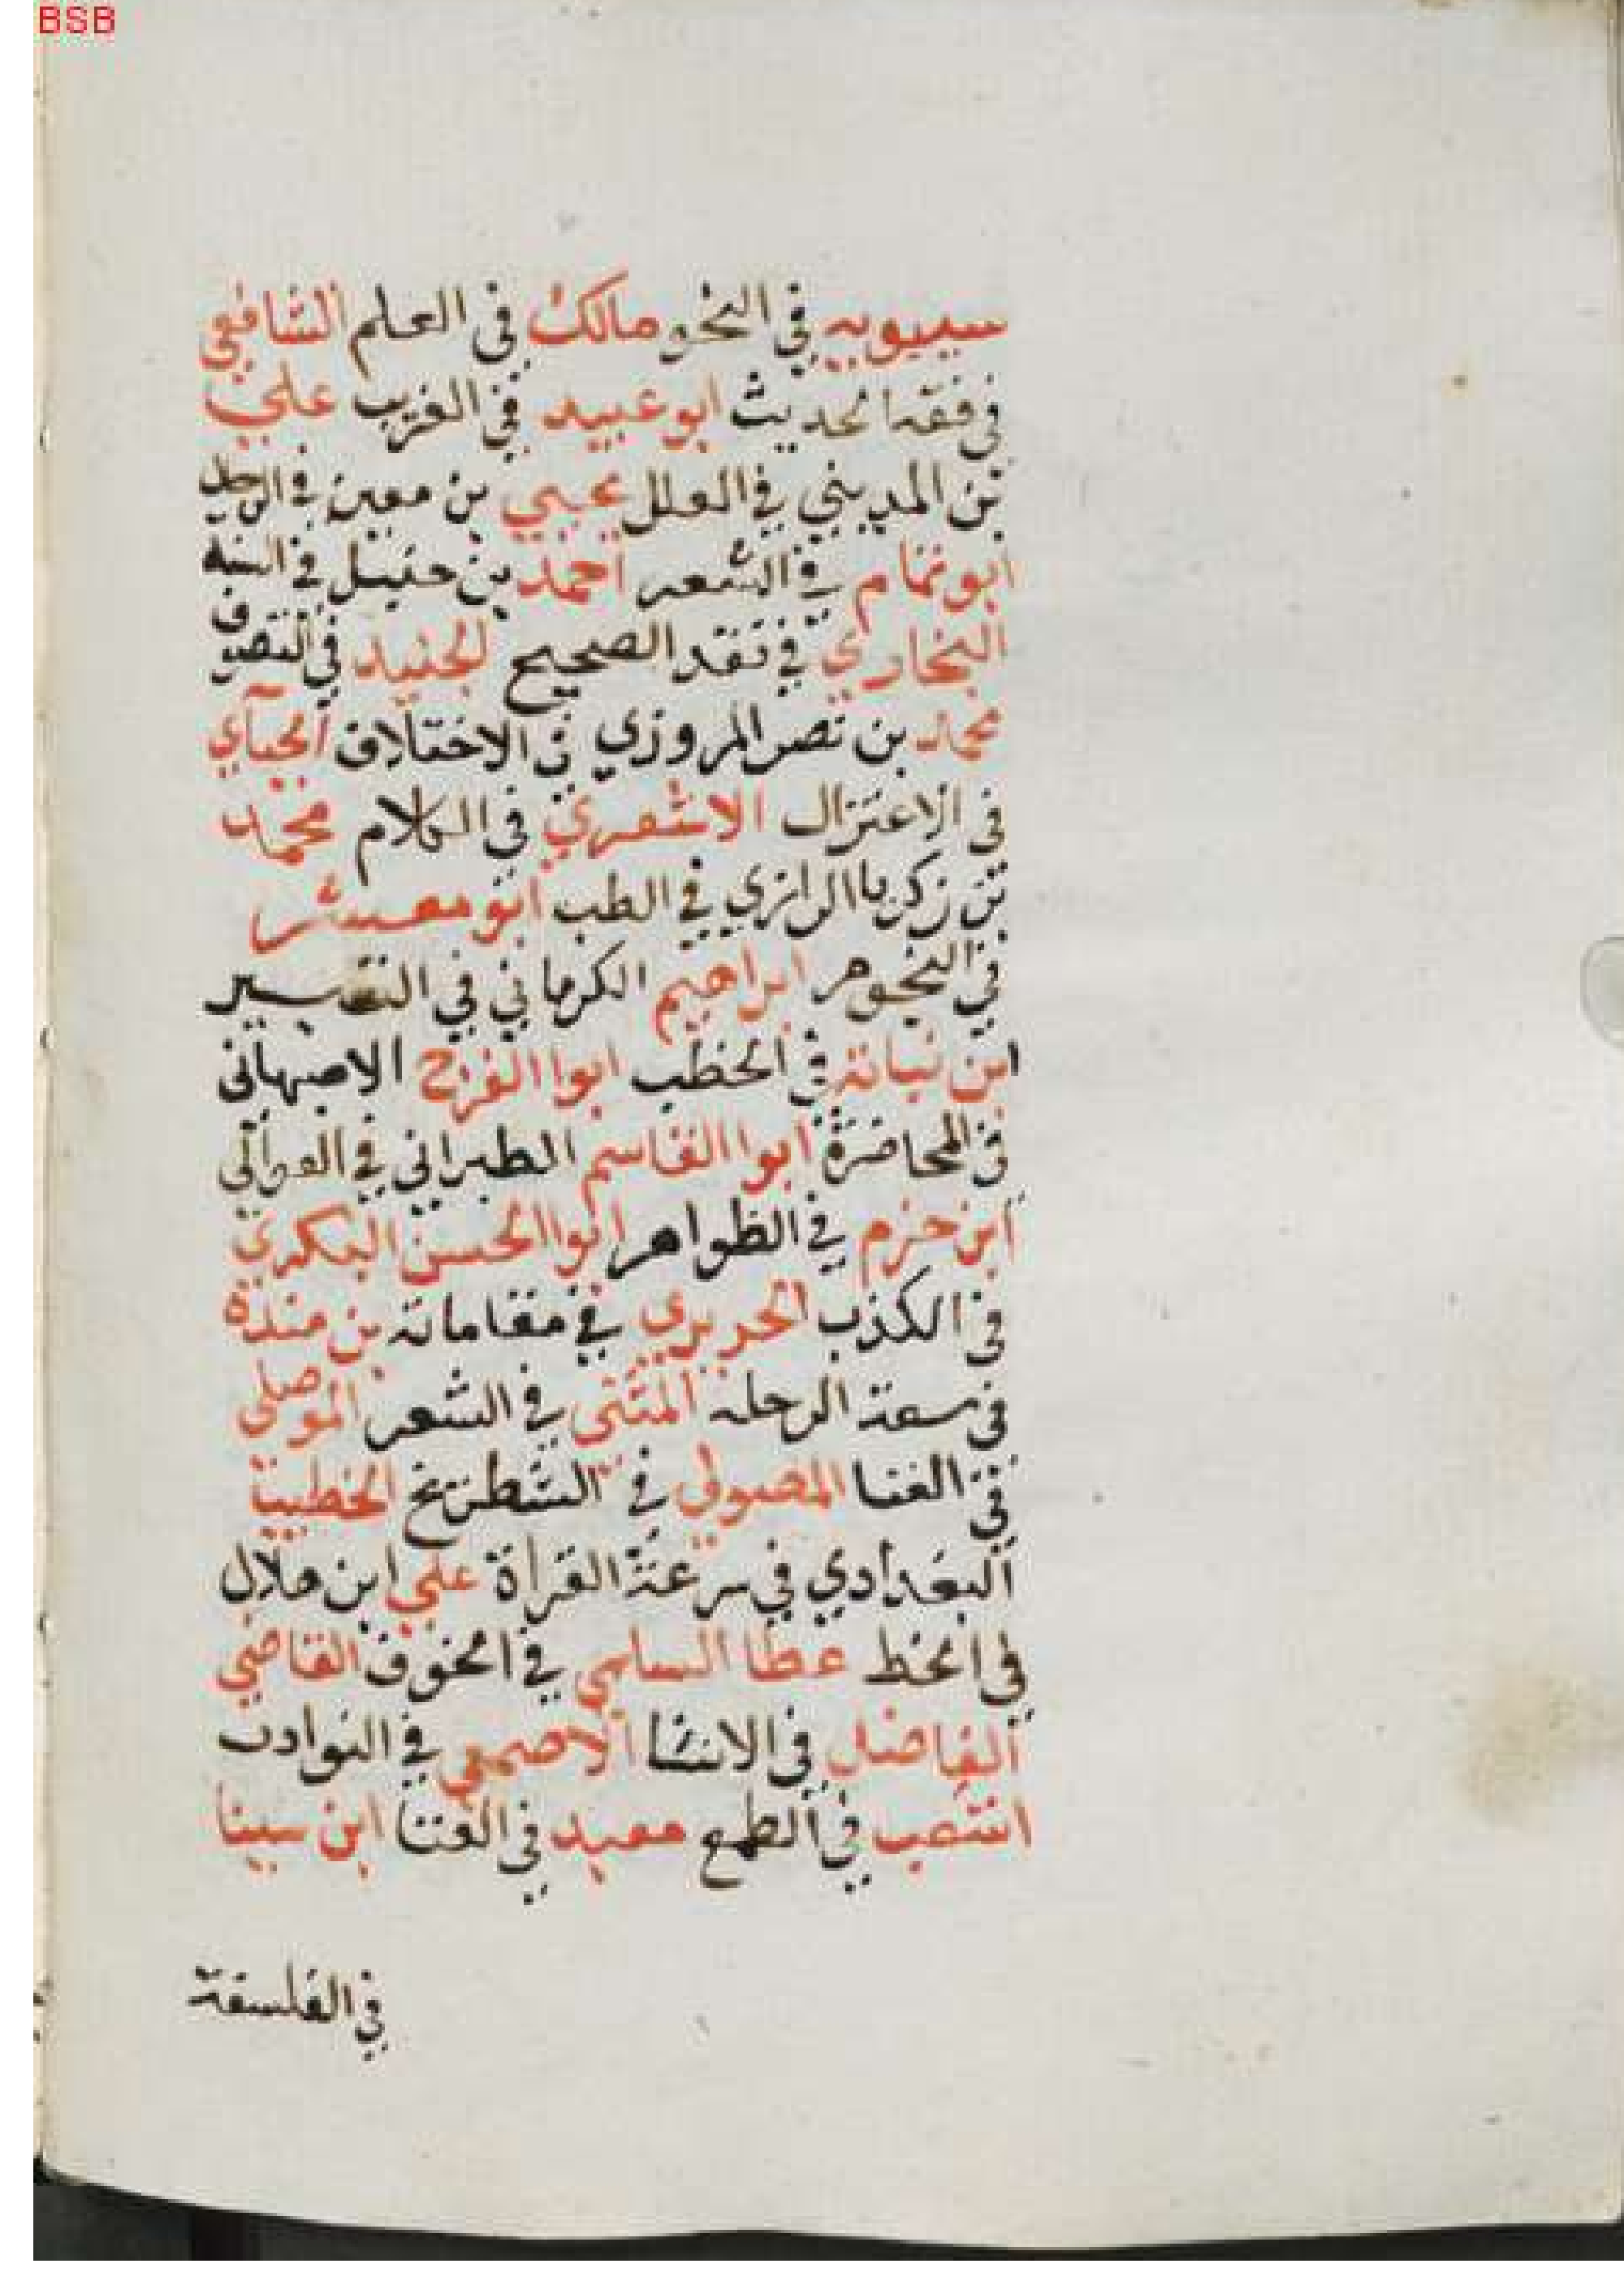 BSB
سيبويه في النحو مالك في العلم الشافعي
في فقه الحديث ابو عبيد في الغريب علي
بن المديني في العلل يحيي بن معين في الرجال
ابو تمام في الشعر احمد بن حنبل في السنة
البخاري في نقد الصحيح الجنيد في التصوف
محمد بن نصر المروزي في الاختلاف الجباي
في الاعتزال الاشعري في الكلام محمد
بن زكريا الرازي في الطب ابو معشر
في النجوم ابراهيم الكرماني في التفسير
ابن نباتة في الخطب ابوا الفرج الاصبهاني
في المحاضرة ابوا القاسم الطبراني في العوالي
ابن حزم في الظواهر ابوا الحسن البكري
في الكذب الحريري في مقاماته بن مندة
في سعة الرحلة المتنبي في الشعر الموصلي
في الغنا الصولي في الشطرنج الخطيب
البغدادي في سرعة القراة علي ابن هلال
في الخط عطا السلمي في الخوف القاضي
الفاضل في الانشا الاصمعي في النوادر
اشعب في الطمع معبد في الغنا ابن سينا
في الفلسفة